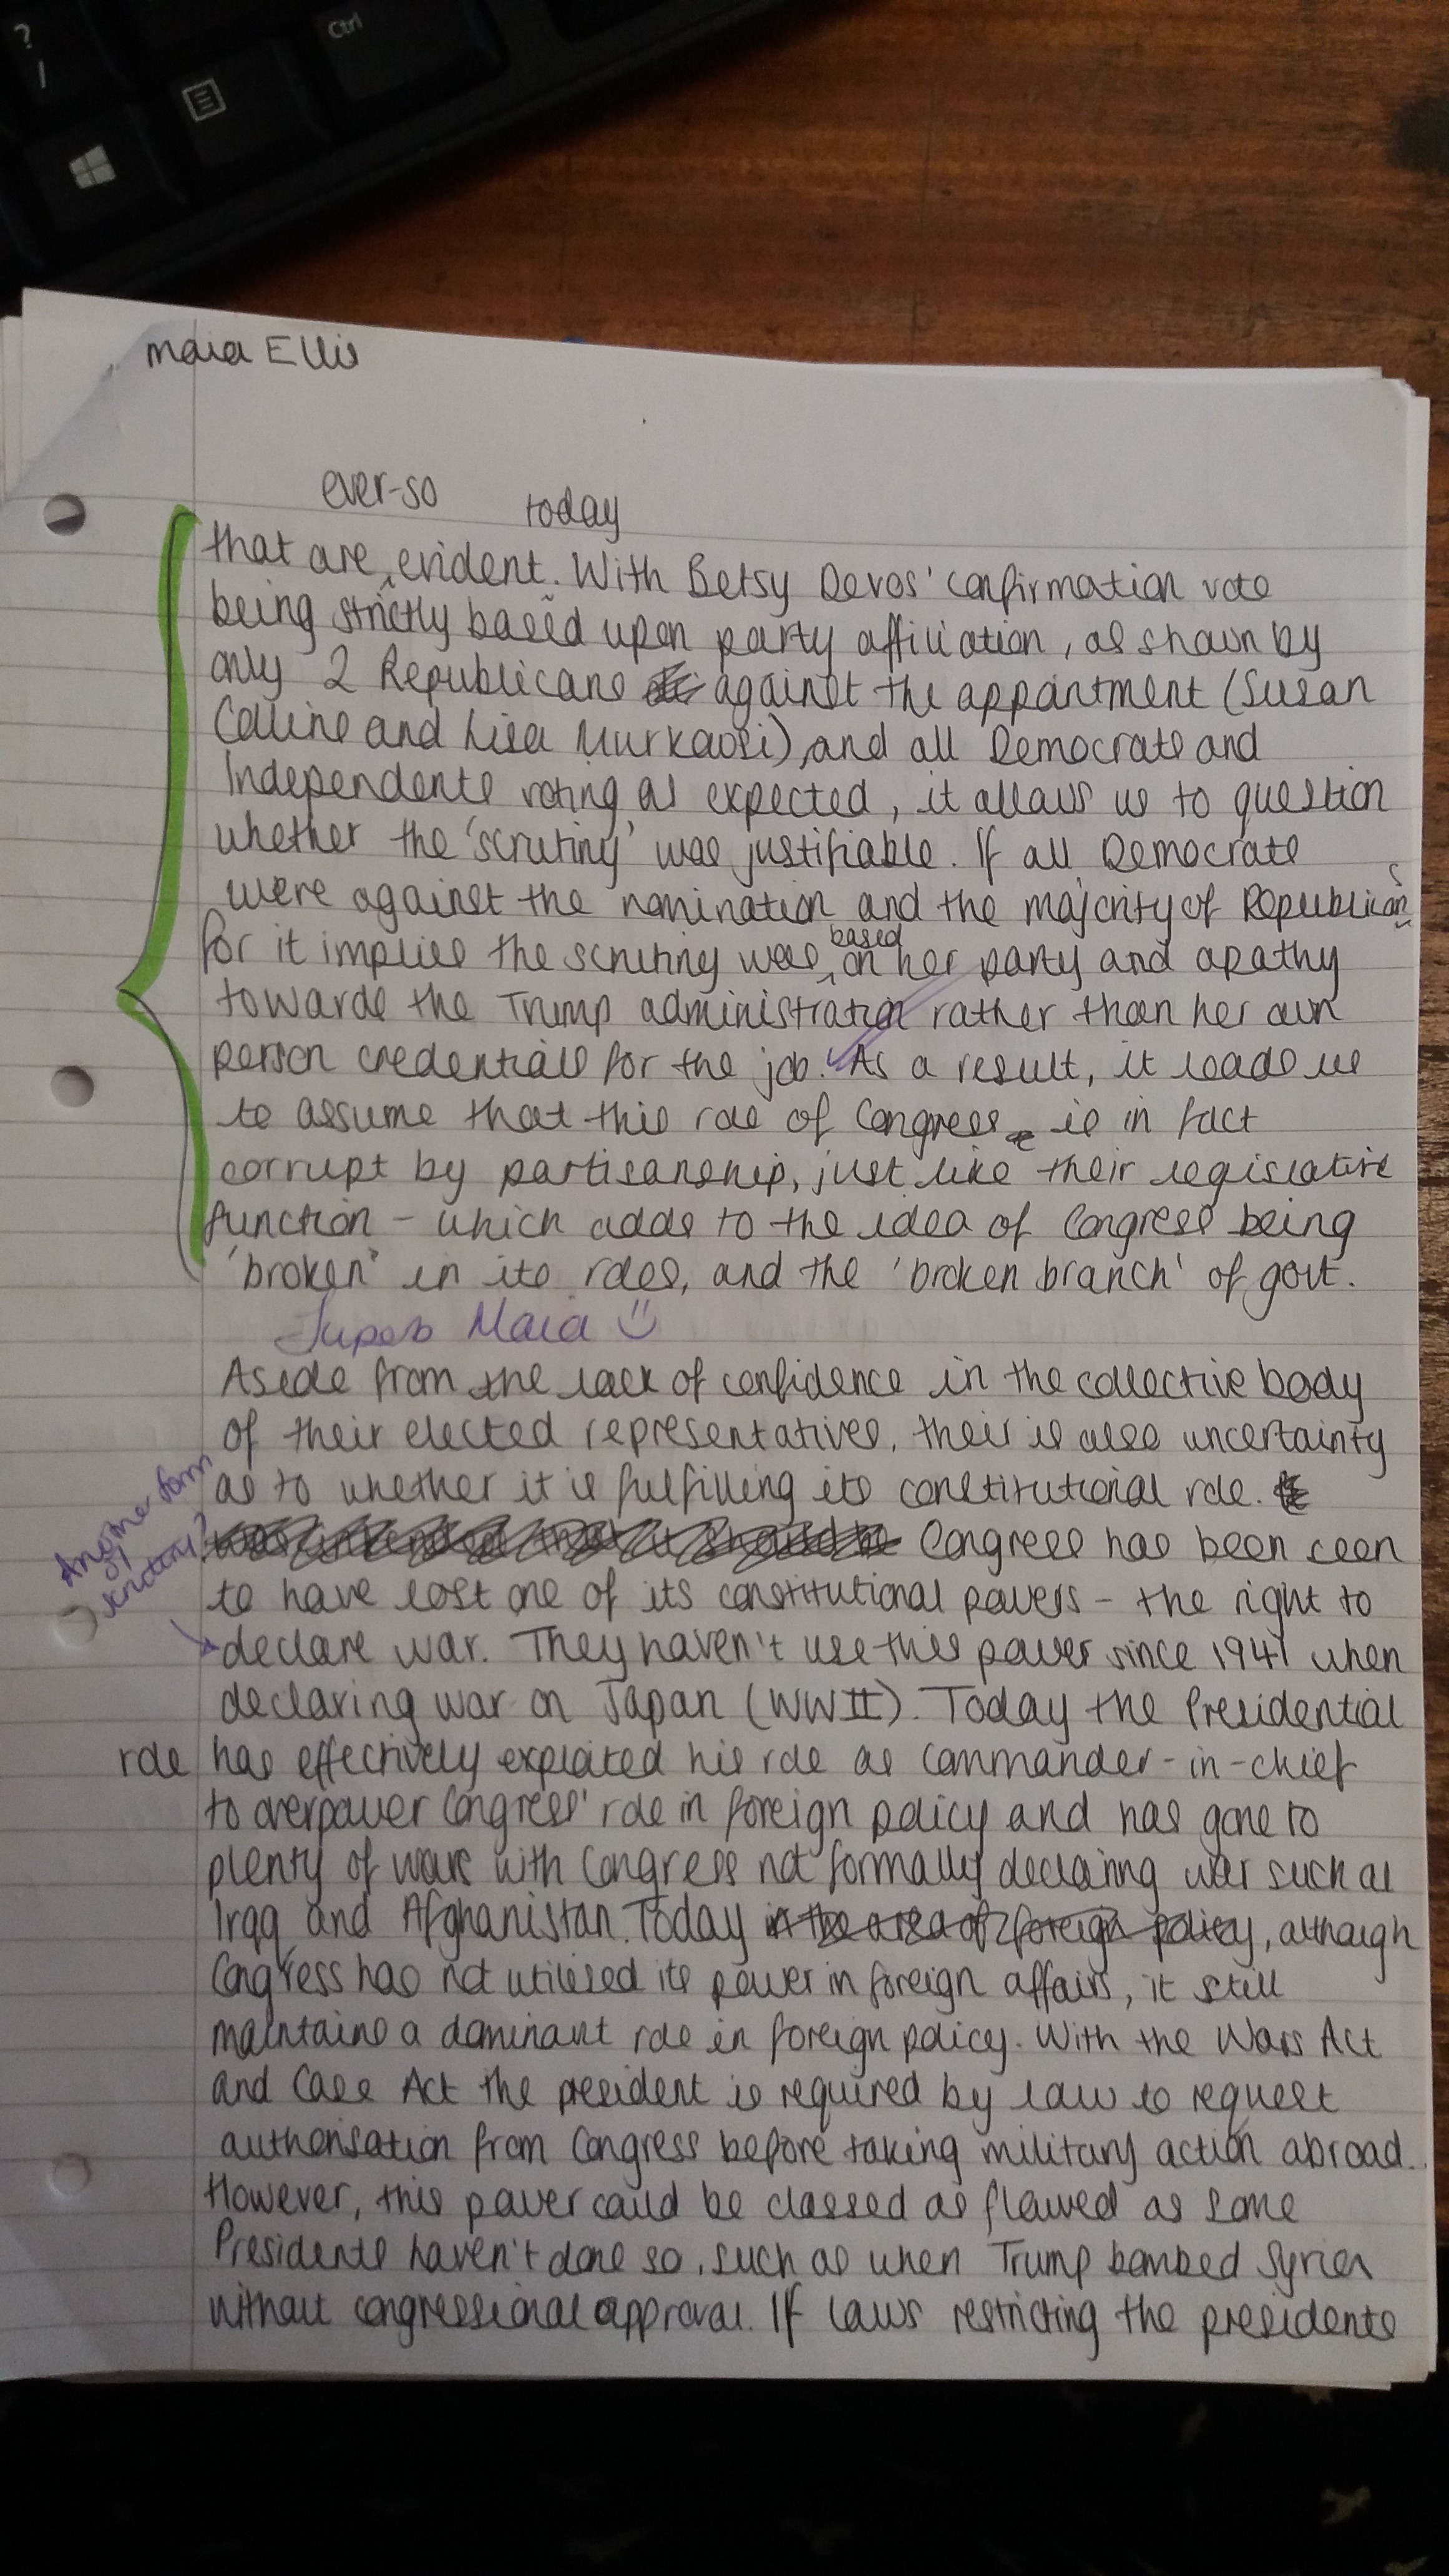 ?
/
Ctrl
Maia Ellis
ever-so today
that are evident. With Betsy Devos' confirmation vote
being strictly based upon party affiliation, as shown by
only 2 Republicans against the appointment (Susan
Collins and Lisa Murkaoski), and all Democrats and
Independents voting as expected, it allows us to question
whether the 'scrutiny' was justifiable. If all Democrats
were against the nomination and the majority of Republicans
based
for it implies the scrutiny was on her party and apathy
towards the Trump administration rather than her own
person credentials for the job. As a result, it leads us
to assume that this role of Congress is in fact
corrupt by partisanship, just like their legislative
function - which adds to the idea of Congress being
'broken' in its roles, and the 'broken branch' of govt.
Super Maia
Aside from the lack of confidence in the collective body
of their elected representatives, their is also uncertainty
as to whether it is fulfilling its constitutional role.
Another form
of
scrutiny?
was intended that it should be Congress has been seen
to have lost one of its constitutional powers - the right to
declare war. They haven't use this power since 1941 when
declaring war on Japan (WWII). Today the Presidential
role has effectively exploited his role as commander-in-chief
to overpower Congress' role in foreign policy and has gone to
plenty of wars with Congress not formally declaring war such as
Iraq and Afghanistan. Today in the area of foreign policy, although
Congress has not utilised its power in foreign affairs, it still
maintains a dominant role in foreign policy. With the Wars Act
and Case Act the president is required by law to request
authorisation from Congress before taking military action abroad.
However, this power could be classed as flawed as some
Presidents haven't done so, such as when Trump bombed Syria
without congressional approval. If laws restricting the presidents